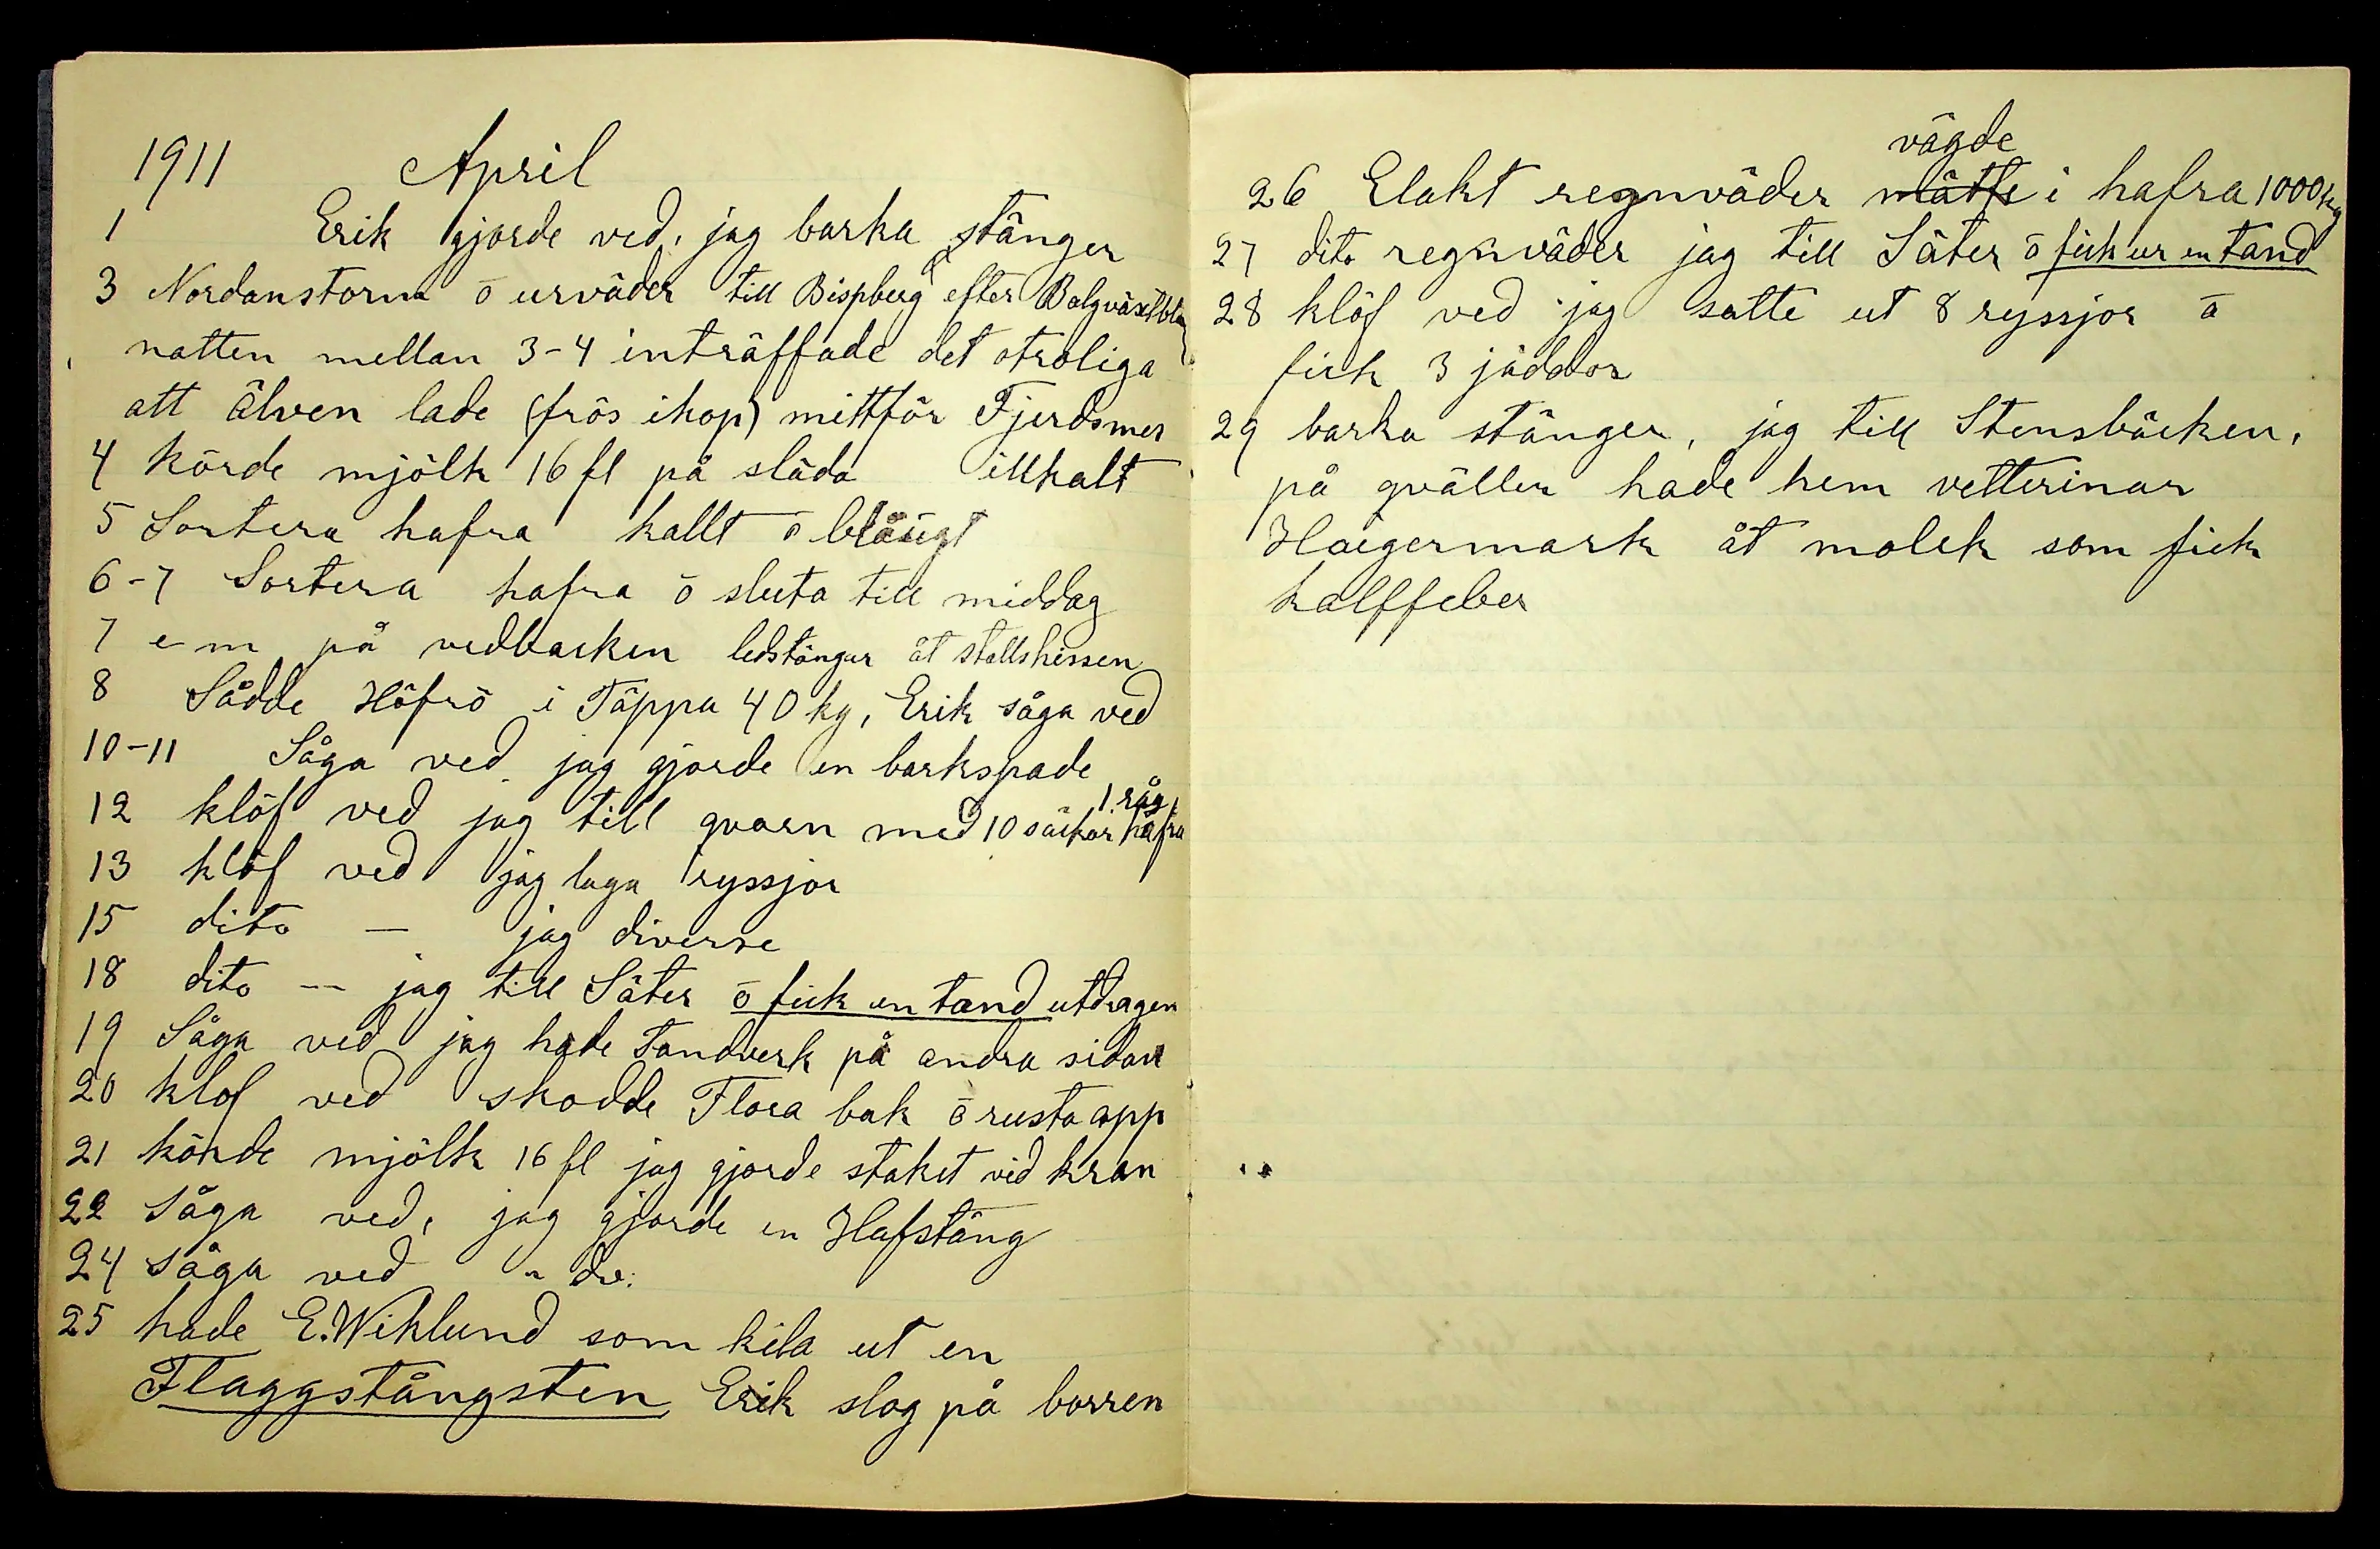 1911 April
1 Erik gjorde ved, jag barka stänger
3 Nordanstorm ō urväder till Bispberg efter
natten mellan 3-4 inträffade det otroliga
att älven lade (frös ihop) mittför Fjerdsmes
4 körde mjölk 16 fl på släda illkalt
5 Sortera hafra kallt ō blåsigt
6-7 Sortera hafra ō sluta till middag
7 e m på vedbacken ledstänger åt stallshissen
8 Sådde Höfrö i Täppa 40 kg, Erik såga ved
10-11 Såga ved jag gjorde en barkspade
12 klöf ved jag till qvarn med 10 säckar hafra 1 råg
13 klöf ved jag laga ryssjor
15 dito — jag diverse
18 dito -- jag till Säter ō fick en tand utdragen
19 Såga ved jag hade Tandverk på andra sidan
20 klöf ved skodde Flora bak ō rusta opp
21 körde mjölk 16 fl jag gjorde staket vid kran
22 Såga ved, jag gjorde en Hafstång
24 såga ved " do:
25 hade E. Wiklund som kila ut en
Flaggstångsten Erik slog på borren
vägde
26 Elakt regnväder mätte i hafra 1000 kg
27 dito regnväder jag till Säter ō fick ur en tand
28 klöf ved jag satte ut 8 ryssjor ō
fick 3 jäddor
29 barka stänger, jag till Stensbäcken,
på qvällen hade hem vetterinar
Haegermark åt molek som fick
kalffeber